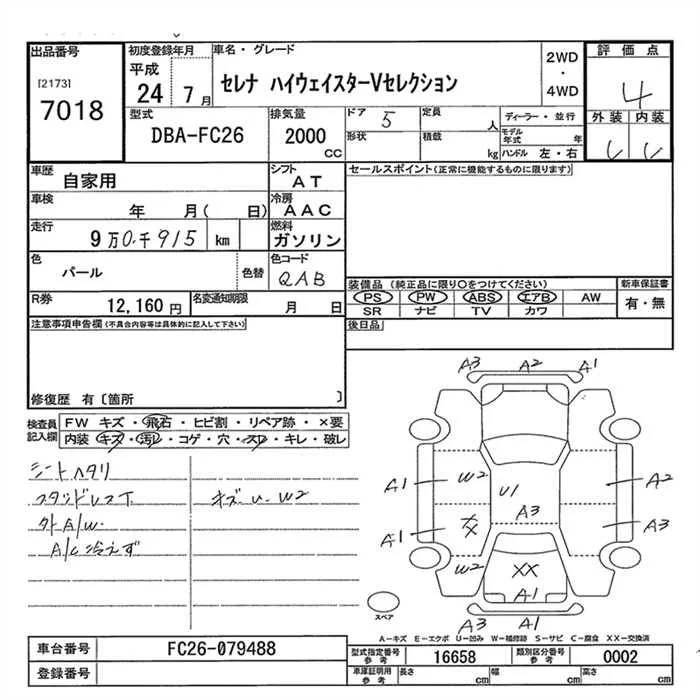 出品番号
[2173]
7018
初度登録年月
平成
24 7 月
車名・グレード
セレナ ハイウェイスターVセレクション
2WD
・
4WD
評価点
4
外装 内装
型式
DBA-FC26
排気量
2000
CC
ドア 5
定員
人
ディーラー・並行
形状
積載
kg
モデル年式
年
ハンドル 左・右
車歴
自家用
シフト
AT
セールスポイント(正常に機能するものに限ります)
車検
年 月( 日)
冷房
AAC
走行
9万0千915 km
燃料
ガソリン
色
パール
色替
色コード
QAB
装備品 (純正品に限り○をつけてください)
新車保証書
PS PW ABS エアB AW
有・無
SR ナビ TV カワ
R券
12,160 円
名変通知期限
月 日
後日品
注意事項申告欄(不具合内容等は具体的に記入して下さい)
修復歴 有〔箇所 〕
検査員記入欄
FW キズ・飛石・ヒビ割・リペア跡・×要
内装 キズ・汚レ・コゲ・穴・スレ・キレ・破レ
シートヘタリ
スタッドレスT
キズ U W2
外A/W
A/C冷えず
A3 A2 A1
A1 W2 U1 A2
A3
A1 XX A3
W2 XX
A1
A3 A1
スペア
A-キズ E-エクボ U-凹み W-補修跡 S-サビ C-腐食 XX-交換済
車台番号 FC26-079488
型式指定番号 参考 16658
類別区分番号 参考 0002
登録番号
車庫証明用 参考 長さ cm 幅 cm 高さ cm